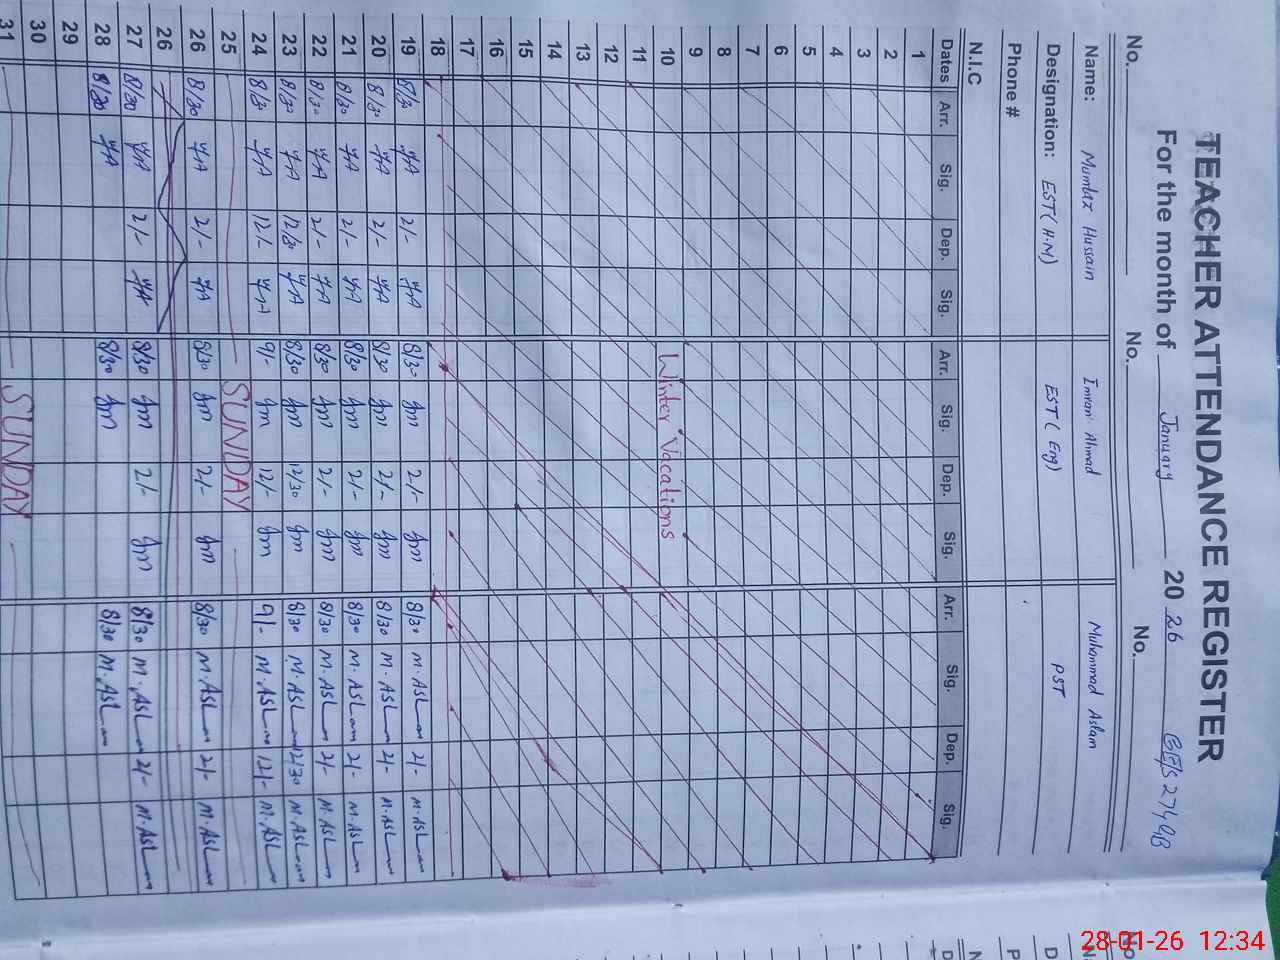 TEACHER ATTENDANCE REGISTER
For the month of January 2026 GES 27498
No. No. No.
Name: Mumtaz Hussain Imran Ahmad Muhammad Aslam
Designation: EST(H.M) EST( Eng) PST
Phone #
N.I.C
Dates Arr. Sig. Dep. Sig. Arr. Sig. Dep. Sig. Arr. Sig. Dep. Sig.
1
2
3
4
5
6
7
8
9
10 Winter Vacations
11
12
13
14
15
16
17
18
19 8/30 2/- 8/30 2/- 8/30 M.ASLam 2/- M.ASLam
20 8/30 2/- 8/30 2/- 8/30 M.ASLam 2/- M.ASLam
21 8/30 2/- 8/30 2/- 8/30 M.ASLam 2/- M.ASLam
22 8/30 2/- 8/30 2/- 8/30 M.ASLam 2/- M.ASLam
23 8/30 12/30 8/30 12/30 8/30 M.ASLam 12/30 M.ASLam
24 8/30 12/- 9/- 12/- 9/- M.ASLam 12/- M.ASLam
25 SUNDAY
26 8/30 2/- 8/30 2/- 8/30 M.ASLam 2/- M.ASLam
26
27 8/30 2/- 8/30 2/- 8/30 M.ASLam 2/- M.ASLam
28 8/30 8/30 8/30 M.ASLam
29
30
31 SUNDAY
28-01-26 12:34